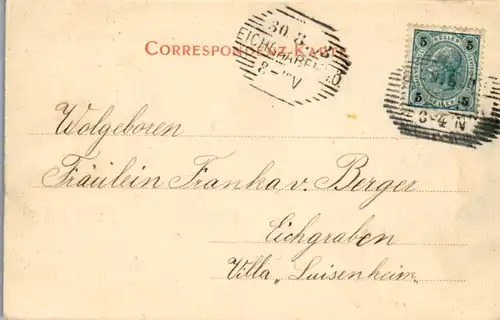 30. 8. 
EICHGRABEN
8-V
CORRESPONDENZ-KARTE
5 HELLER 5
5 5
Wolgeboren
Fräulein Franka v. Berger
Eichgraben
Villa „Luisenheim"